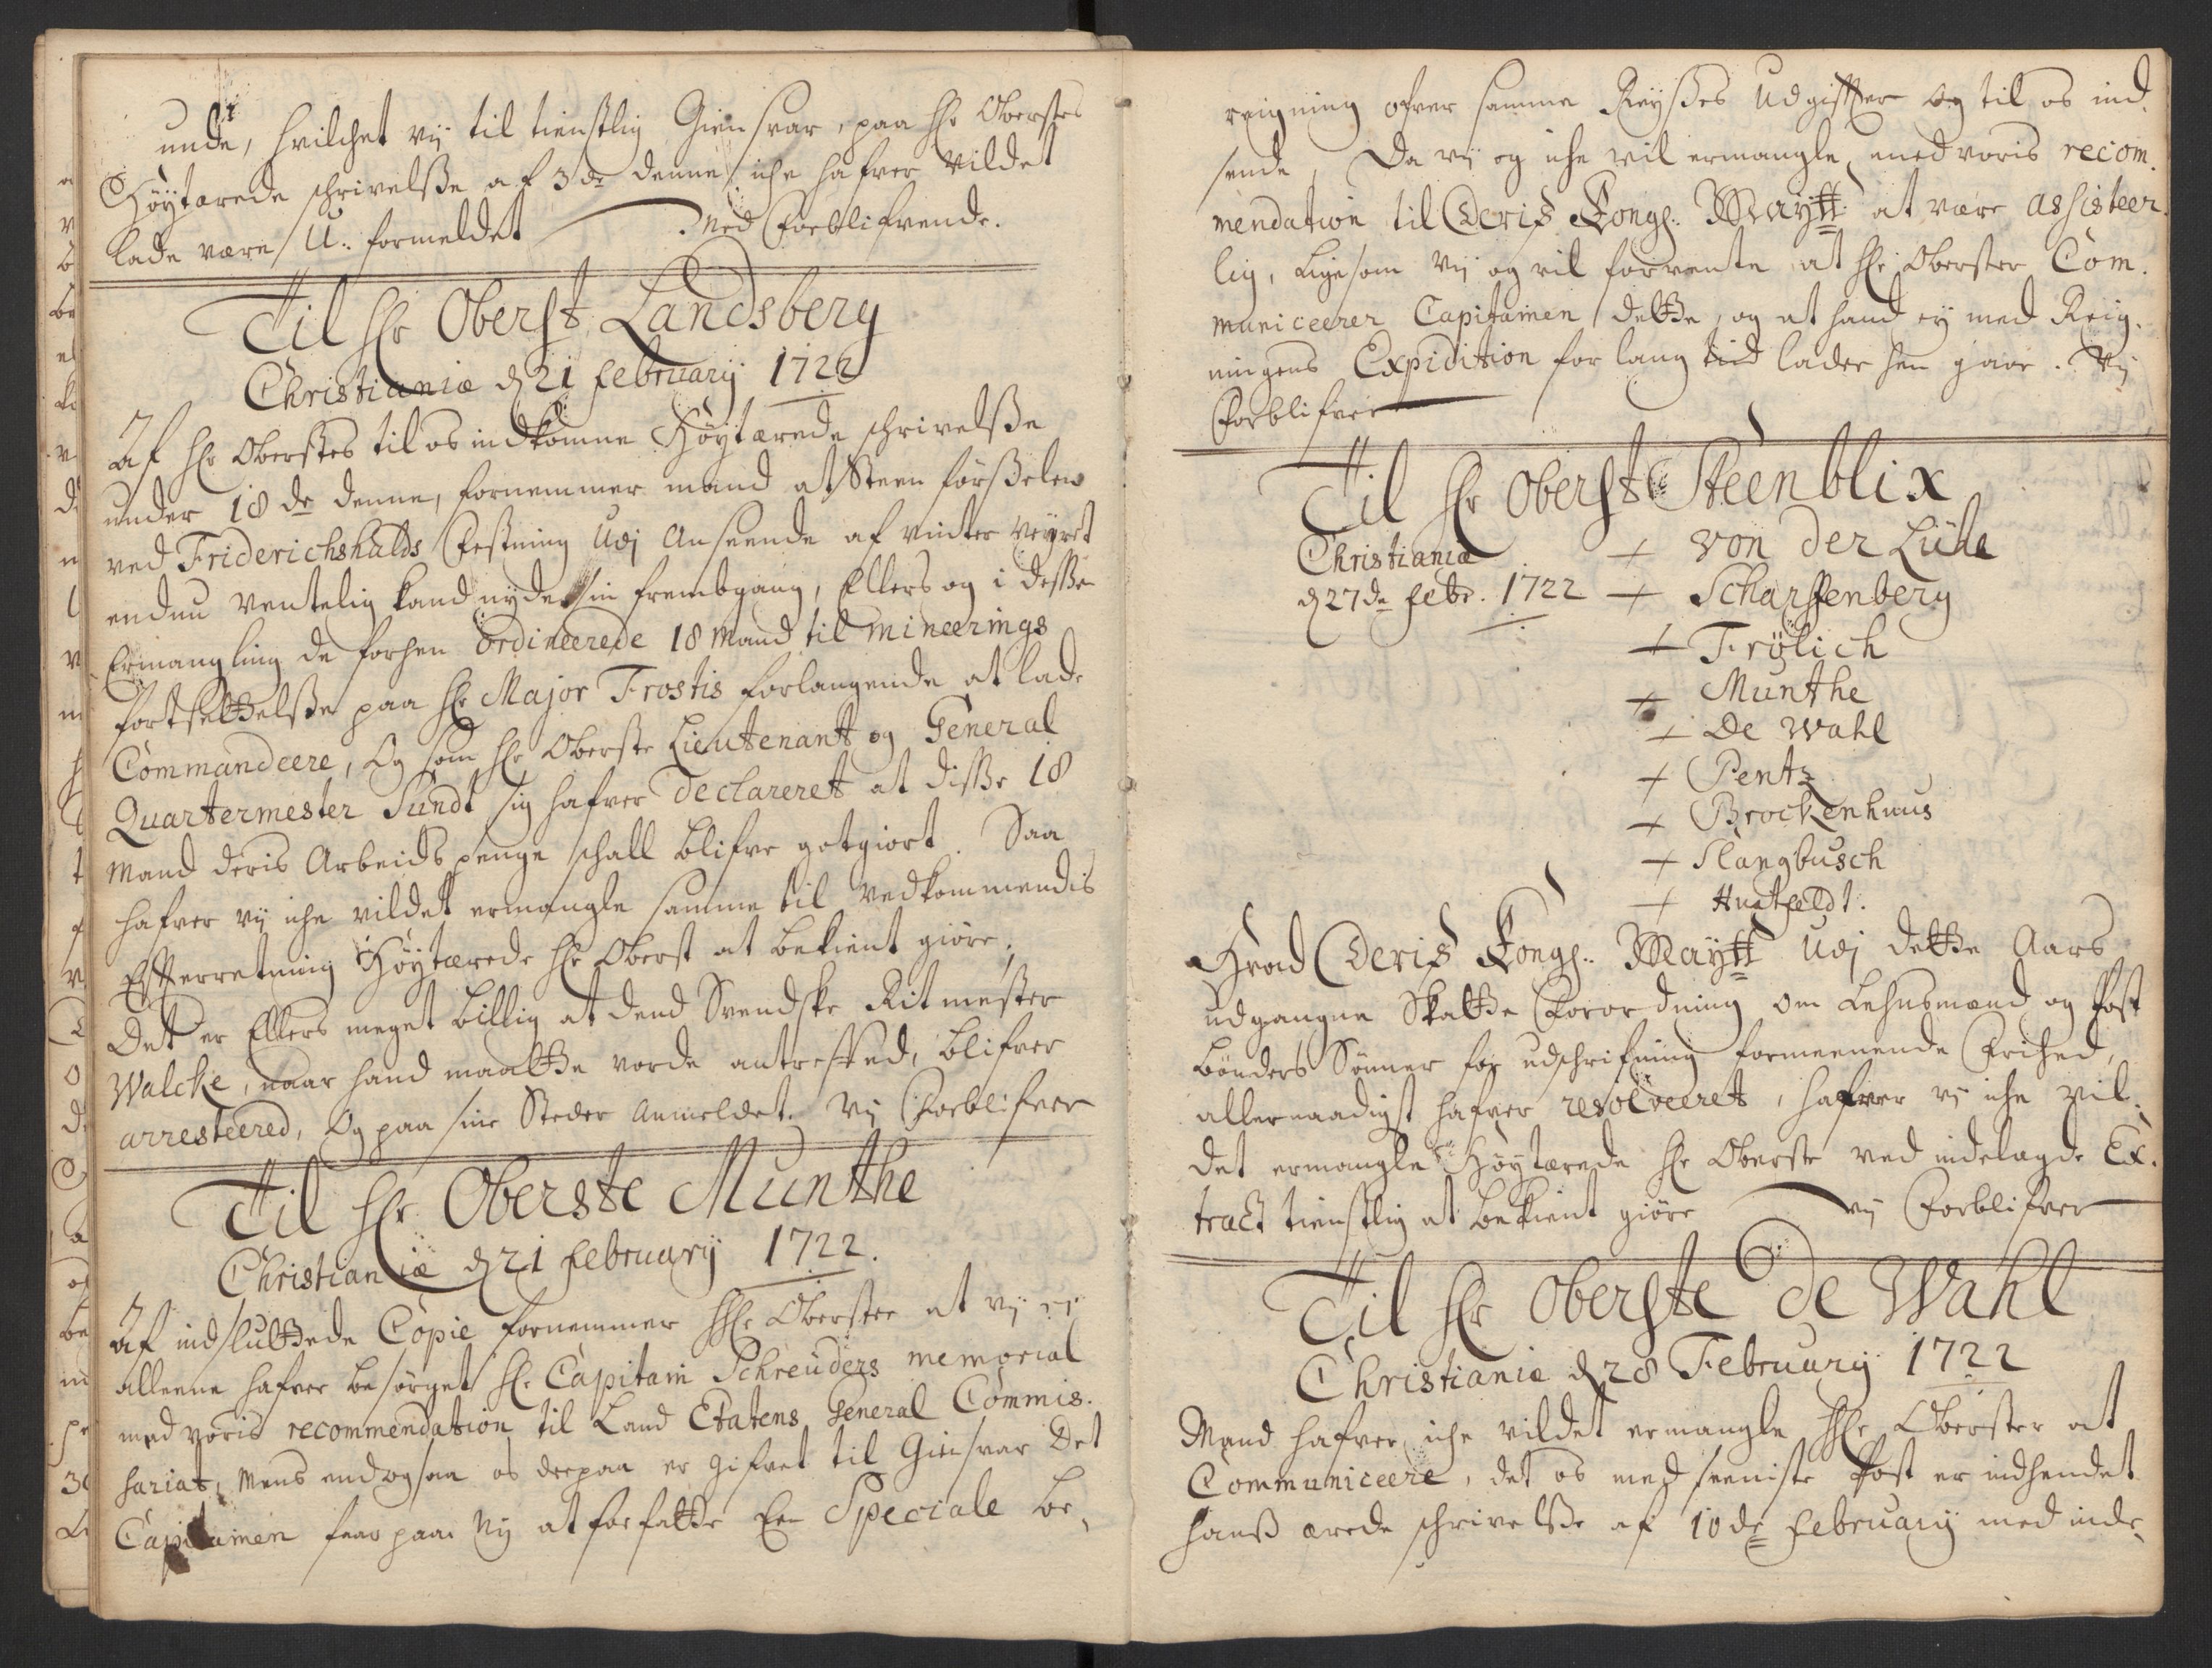 unde, hvilchet vij til tienstlig Giensvar, paa Hr Oberstes
Höytærede schrivelsse af 3de denne iche hafver vildet
lade være U: formeldet Med Forblifvende.
Til Hr Oberst Landsberg
Christianiæ d 21 February 1722
Af Hr Oberstes til os indkomne Höytærede schrivelsse
under 18de denne, fornemmer mand at Steen förßelen
ved Friderichshalds Festning Udj Anseende af vinter veyret
endnu ventelig kand nyde sin frembgang, Ellers og i desse
Ermangling de forhen ordineerede 18 Mand til mineerings
fortsettelsse paa Hr Major Frostis forlangende at lade
Commandeere, Og som Hr Oberste Lieutenant og General
Quartermester Sundt sig hafver declareret at disse 18
Mand deris Arbeids penge schall blifve gotgiort. Saa
hafver vij iche vildet ermangle samme til vedkommendis
Efterretning Höytærede Hr Oberst at bekient giöre,
Det er Ellers meget billig at dend Svendske Ritmester
Walcke, naar hand maatte vorde antreffed, blifver
arresteered, Og paa sine Steder Anmeldet. Vij Forblifver
Til Hr Oberste Munthe
Christianiæ d 21 February 1722.
Af indsluttede Copie fornemmer Hr Oberster at vij ey
alleene hafver besörget Hr Capitain Schreuders memorial
med voris recommendation til Land Etatens General Commis.
sariat, Mens endogsaa os derpaa er gifvet til Giensvar Det
Capitainen faar paa Ny at forfatte En Speciale be,
reigning ofver samme Reyßes Udgifter Og til os ind,
sende, Da vij og iche vil ermangle, med voris recom.
mendation til Deris Kongl: Maytt at være assisteer,
lig, ligesom vij og vil forvente at Hr Oberster Com.
municeerer Capitainen dette, og at hand ey med Reig.
ningens Expidition for lang tiid lader hen gaae. Vij
Forblifver
Til Hr Oberst Steenblix
Christianiæ + von der Lühe
d 27de Febr. 1722 + Scharffenberg
+ Frölich
+ Munthe
+ De Wahl
+ Pentz
+ Brockenhuus
+ Slangbusch
+ Huitfeldt.
Hvad Deris Kongl: Maytt Udj dette Aars
udgangne Skatte Forordning om Lehnsmænd og Post
bönders Sönner for udschrifning formeenende Frihed,
allernaadigst hafver resolveeret, hafver vij iche vil,
det ermangle Höytærede Hr Oberste ved indelagde Ex.
tract tienstlig at bekient giöre vij Forblifver
Til Hr Oberste de Wahl
Christianiæ d 28 February 1722
Mand hafver iche vildet ermangle Hr Oberster at
Communiceere, det os med seeniste Post er indhendet
hanß ærede schrivelsse af 10de February med inde,